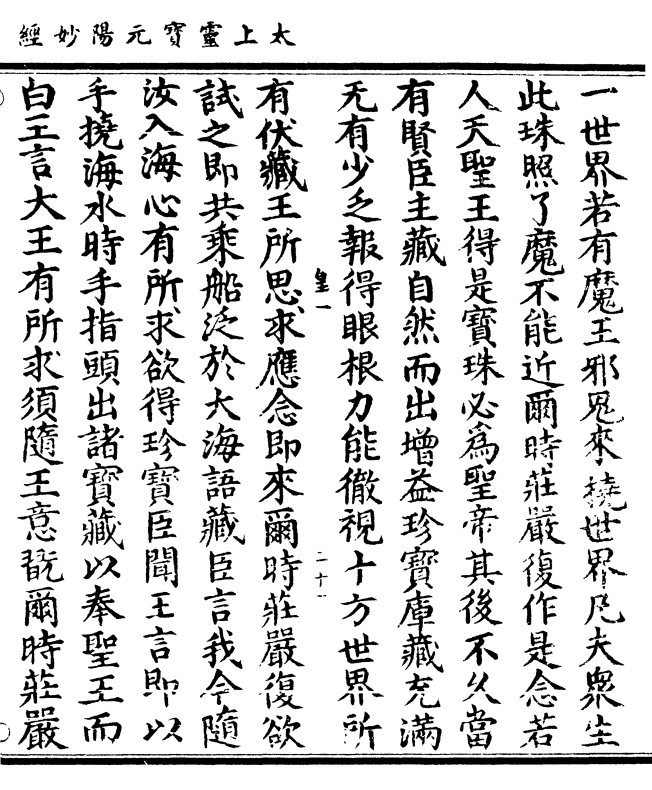 太上靈寶元陽妙經
一世界若有魔王邪鬼來撓世界凡夫眾生
此珠照了魔不能近爾時莊嚴復作是念若
人天聖王得是寶珠必為聖帝其後不久當
有賢臣主藏自然而出增益珍寶庫藏充滿
无有少乏報得眼根力能徹視十方世界所
皇一
二十一
有伏藏王所思求應念即來爾時莊嚴復欲
試之即共乘船泛於大海語藏臣言我今隨
汝入海心有所求欲得珍寶臣聞王言即以
手撓海水時手指頭出諸寶藏以奉聖王而
白王言大王有所求須隨王意翫爾時莊嚴